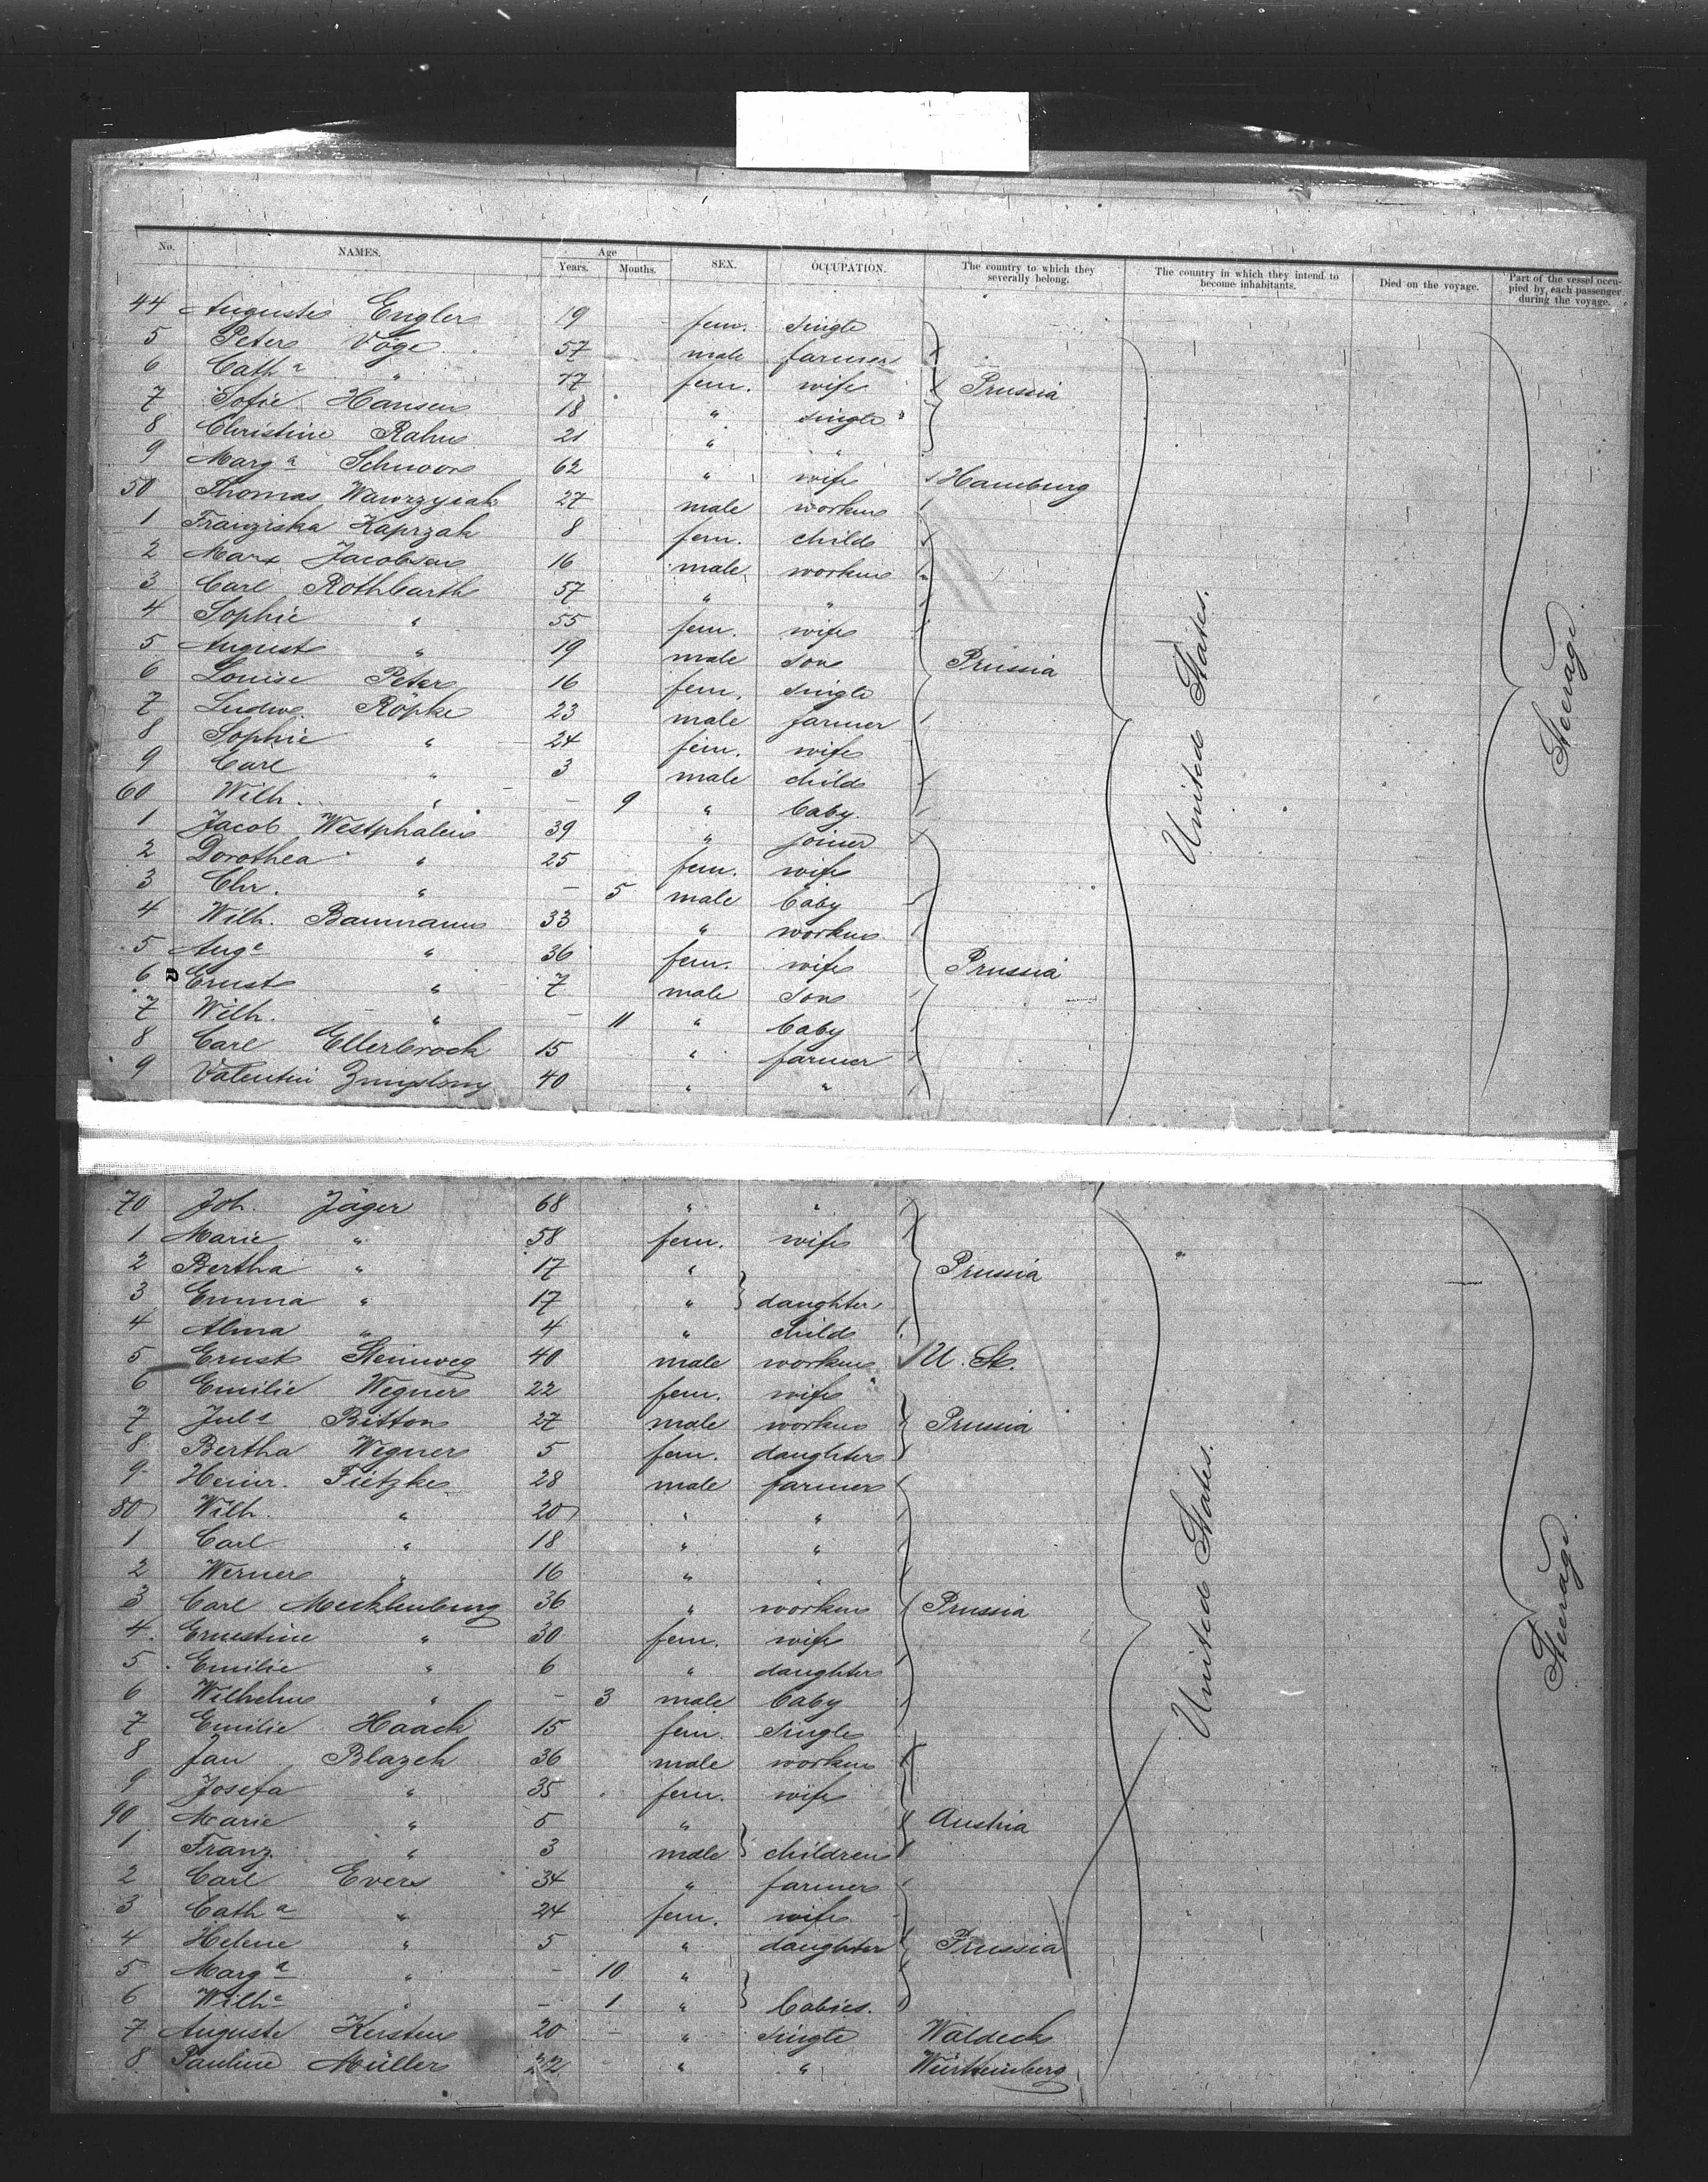 No. NAMES. Age Years. Months. SEX. OCCUPATION. The country to which they severally belong. The country in which they intend to become inhabitants. Died on the voyage. Part of the vessel occupied by each passenger during the voyage.
44 Auguste Engler 19 fem. single
5 Peter Vöge 57 male farmer
6 Cath a " 77 fem. wife Prussia
7 Sofie Hansen 18 " single
8 Christine Rahn 21 " "
9 Marg a Schwoon 62 " wife Hamburg
50 Thomas Wawrzyniak 27 male workm
1 Franziska Kaprzak 8 fem. child
2 Marx Jacobsen 16 male workm
3 Carl Rothbarth 57 " "
4 Sophie " 55 fem. wife
5 August " 19 male son Prussia
6 Louise Peter 16 fem. single
7 Ludw. Röpke 23 male farmer
8 Sophie " 24 fem. wife
9 Carl " 3 male child
60 Wilh. " - 9 " baby. United States. Steerage.
1 Jacob Westphalen 39 " joiner
2 Dorothea " 25 fem. wife
3 Chr. " - 5 male baby
4 Wilh. Baumann 33 " workm
5 Aug e " 36 fem. wife Prussia
6 Ernst " 7 male son
7 Wilh. " - 11 " baby
8 Carl Ellerbrock 15 " farmer
9 Valentin 40 " "
70 Joh. Jäger 68 " "
1 Marie " 58 fem. wife
2 Bertha " 17 " Prussia
3 Emma " 17 " daughter
4 Alma " 4 " child
5 Ernst Steinweg 40 male workm U. St.
6 Emilie Wegner 22 fem. wife
7 Jul s Ritton 27 male workm Prussia
8 Bertha Wegner 5 fem. daughter
9 Heinr. Fietzke 28 male farmer
80 Wilh. " 20 " "
1 Carl " 18 " "
2 Werner " 16 " "
3 Carl Mecklenburg 36 " workm Prussia
4 Ernestine " 30 fem. wife
5 Emilie " 6 " daughter
6 Wilhelm " - 3 male baby United States. Steerage.
7 Emilie Haack 15 fem. single
8 Jan Blazek 36 male workm
9 Josefa " 35 fem. wife
90 Marie " 5 " Austria
1 Franz " 3 male children
2 Carl Evers 34 " farmer
3 Cath a " 24 fem. wife
4 Helene " 5 " daughter Prussia
5 Marg a " - 10 "
6 Wilh e " - 1 " babies.
7 Auguste Kersten 20 - " single Waldeck
8 Pauline Müller 22 " " Würtemberg